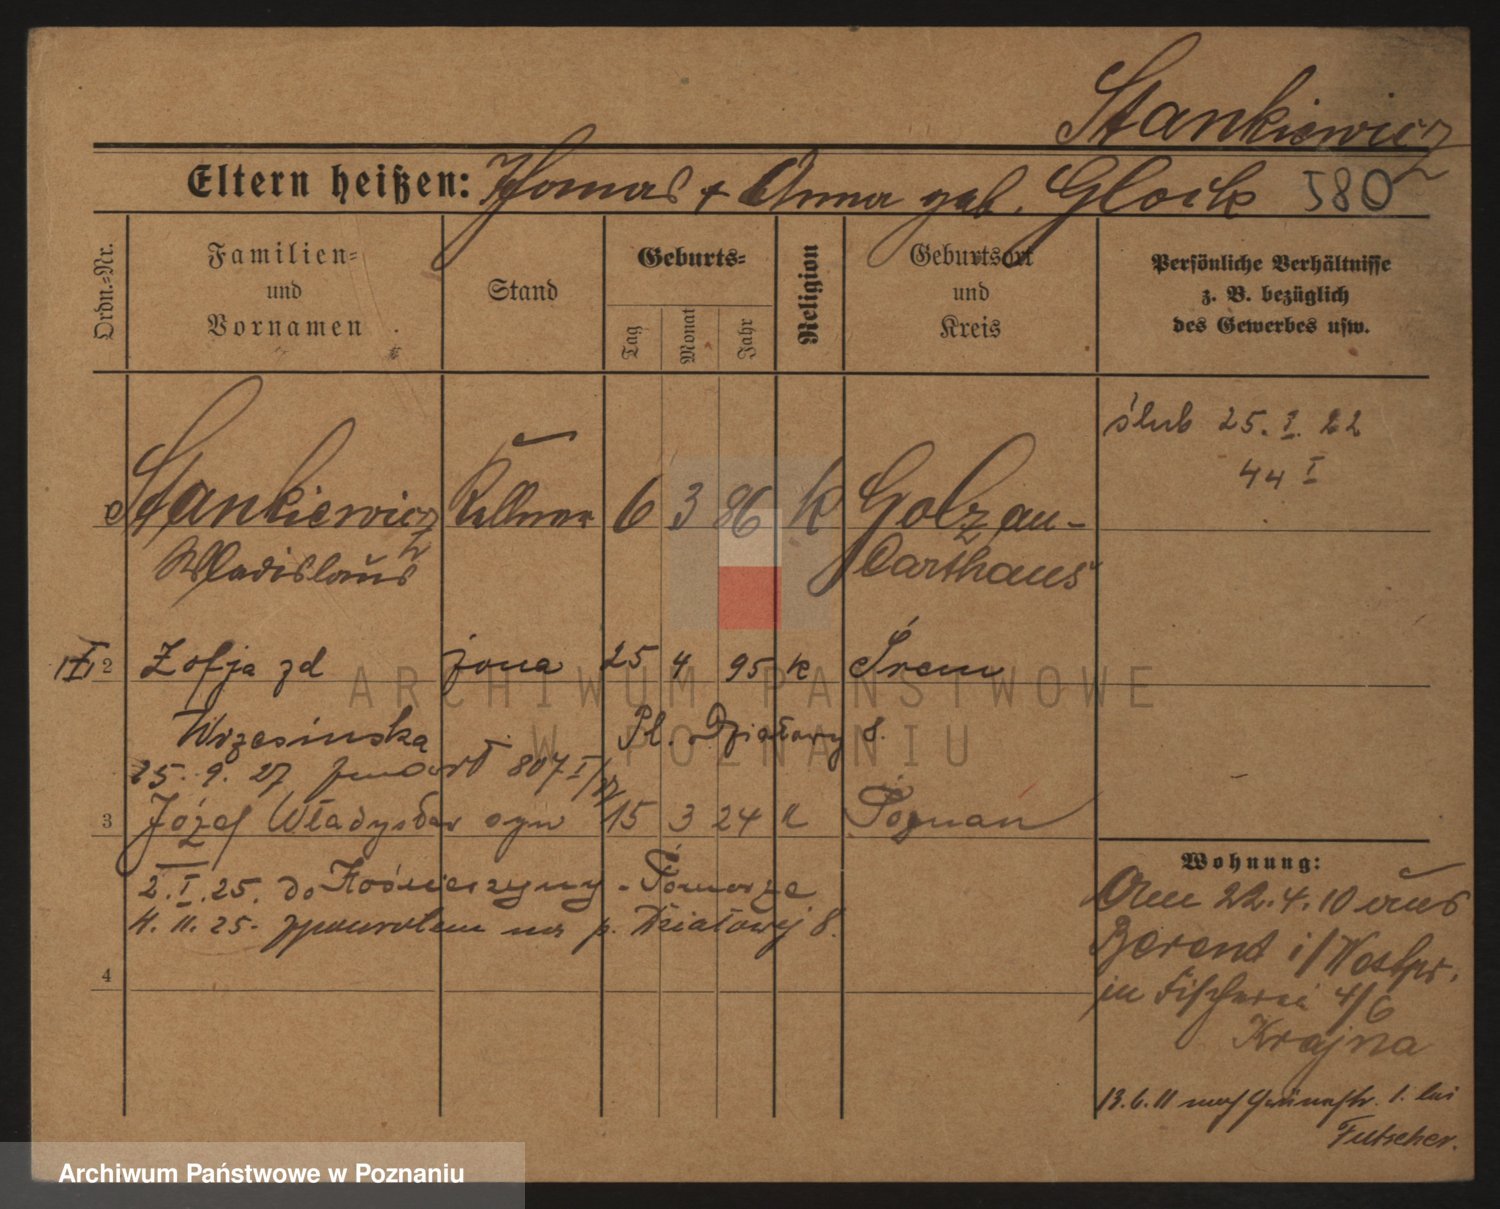 Stankiewicz
Eltern heißen: Thomas + Anna geb. Glock 580
Ordn.=Nr.
Familien=
und
Vornamen
Stand
Geburts=
Tag
Monat
Jahr
Religion
Geburtsort
und
Kreis
Persönliche Verhältnisse
z. B. bezüglich
des Gewerbes usw.
ślub 25. I. 22
44 I
Stankiewicz Kellner 6 3 86 K Golzau-
Wladislaus Carthaus
2 Zofja zd żona 25 4 95 k Śrem
Wrzesinska Pl. Działowy 8.
25. 9. 27 807 I/27
3 Józef Władysław syn 15 3 24 k Poznań
2. I. 25. do Kościerzyny - Pomorze
4. 11. 25. zpowrotem na p. Działowej 8.
4
Wohnung:
Am 22.4.10 aus
Berent i/Westpr.
in Fischerei 4/6
Krajna
13.6.11 nach Grünestr. 1. bei
Futscher.
ARCHIWUM PAŃSTWOWE
W POZNANIU
Archiwum Państwowe w Poznaniu